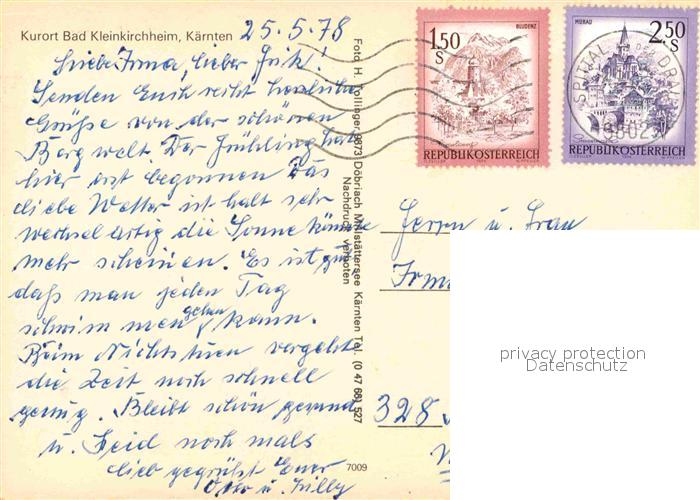 Kurort Bad Kleinkirchheim, Kärnten 25.5.78
Liebe Irma, lieber Fritz!
Senden Euch recht herzliche
Grüße von der schönen
Bergwelt. Der Frühling hat
hier erst begonnen Das
liebe Wetter ist halt sehr
wechselartig die Sonne könnte
mehr scheinen. Es ist gut,
daß man jeden Tag
schwimmen gehen kann.
Beim Nichtstuen vergeht
die Zeit noch schnell
genug. Bleibt schön gesund
u. Seid noch mals
lieb gegrüßt Euer
Otto u. Lilly
Foto H. Tollinger 9873 Döbriach Millstättersee Kärnten Tel. (0 47 68) 527
Nachdruck verboten
7009
BLUDENZ
1.50
S
REPUBLIK ÖSTERREICH
MURAU
2.50
S
REPUBLIK ÖSTERREICH
SPITTAL AN DER DRAU
9802
Herrn u. Frau
Irma
328
privacy protection
Datenschutz